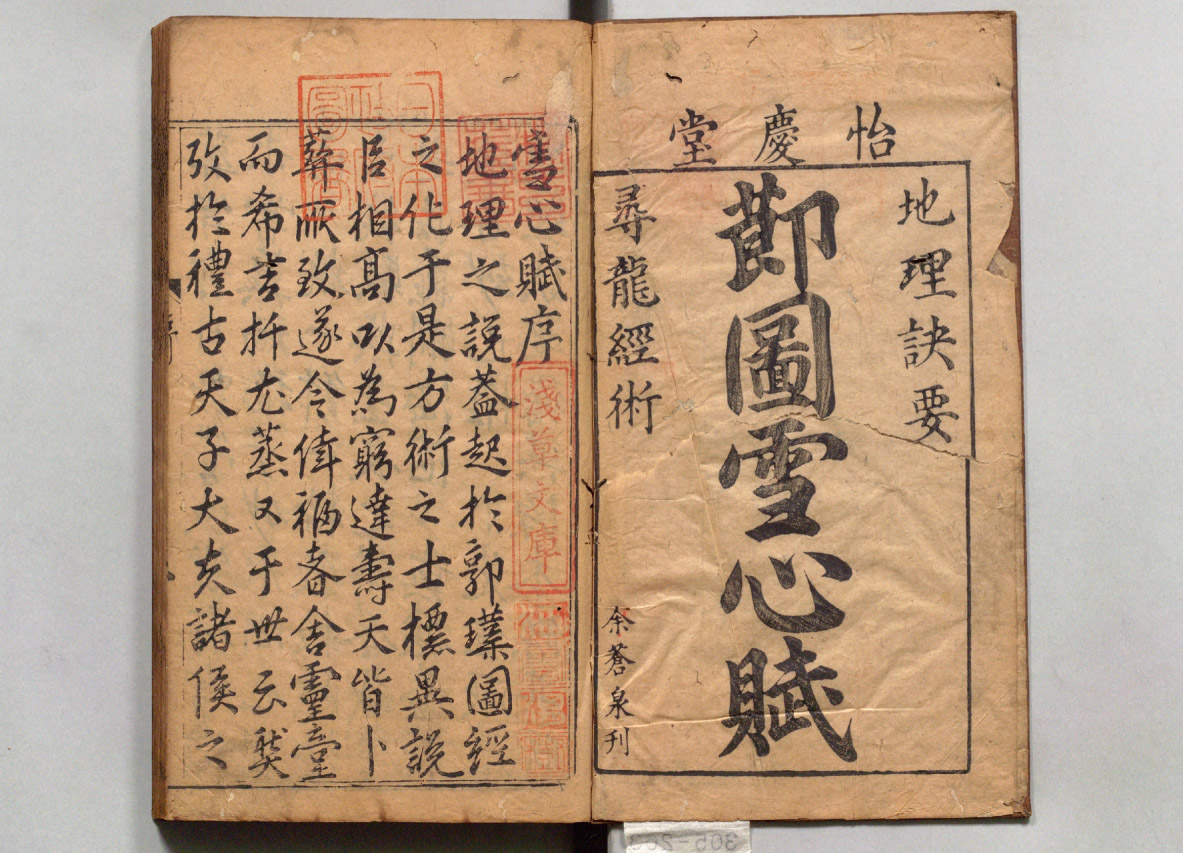 怡慶堂
地理訣要
莭圖雪心賦
尋龍經術
余蒼泉刊
雪心賦序
地理之說蓋起於郭璞圖經
之化于是方術之士標異說
㠯相髙㕥為窮達壽夭皆卜
葬所致遂令偉福眷舍靈臺
而希吉扦尤蒸又于世云獘
攷於禮古天子大夫諸侯之
淺草文庫
日本